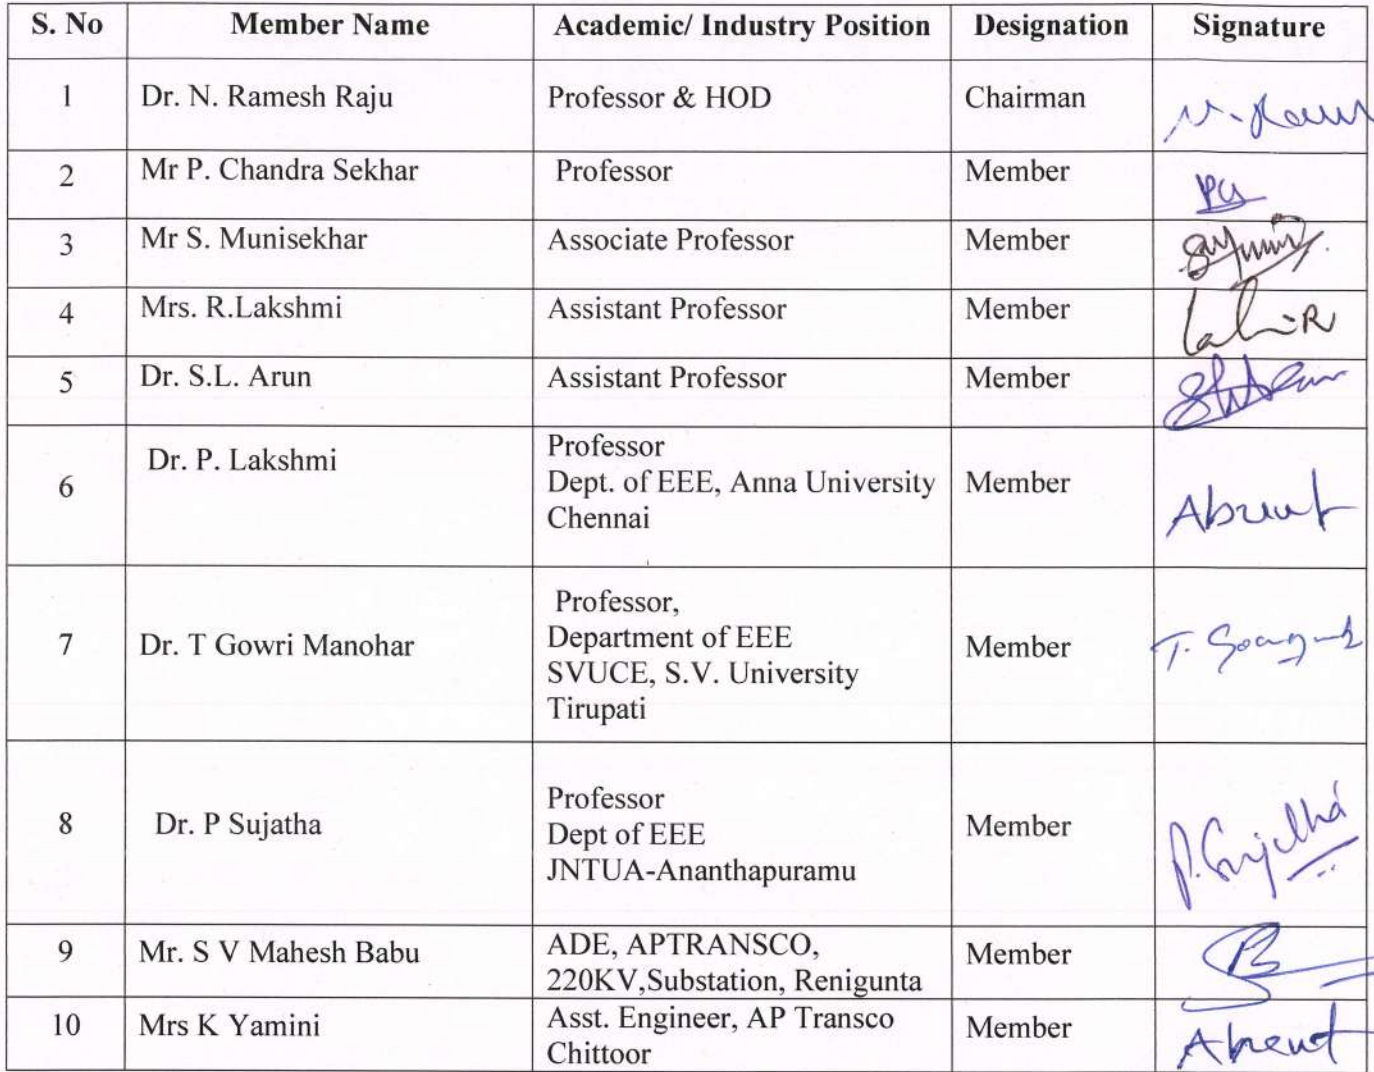 S. No Member Name Academic/ Industry Position Designation Signature
1 Dr. N. Ramesh Raju Professor & HOD Chairman
2 Mr P. Chandra Sekhar Professor Member
3 Mr S. Munisekhar Associate Professor Member
4 Mrs. R.Lakshmi Assistant Professor Member
5 Dr. S.L. Arun Assistant Professor Member
6 Dr. P. Lakshmi Professor
Dept. of EEE, Anna University
Chennai
Member Absent
7 Dr. T Gowri Manohar Professor,
Department of EEE
SVUCE, S.V. University
Tirupati
Member
8 Dr. P Sujatha Professor
Dept of EEE
JNTUA-Ananthapuramu
Member P. Sujatha
9 Mr. S V Mahesh Babu ADE, APTRANSCO,
220KV,Substation, Renigunta
Member
10 Mrs K Yamini Asst. Engineer, AP Transco
Chittoor
Member Absent